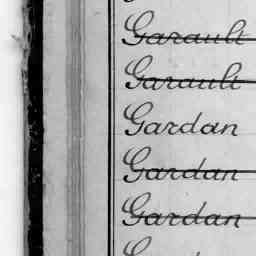 Garault
Garault
Gardan
Gardan
Gardan